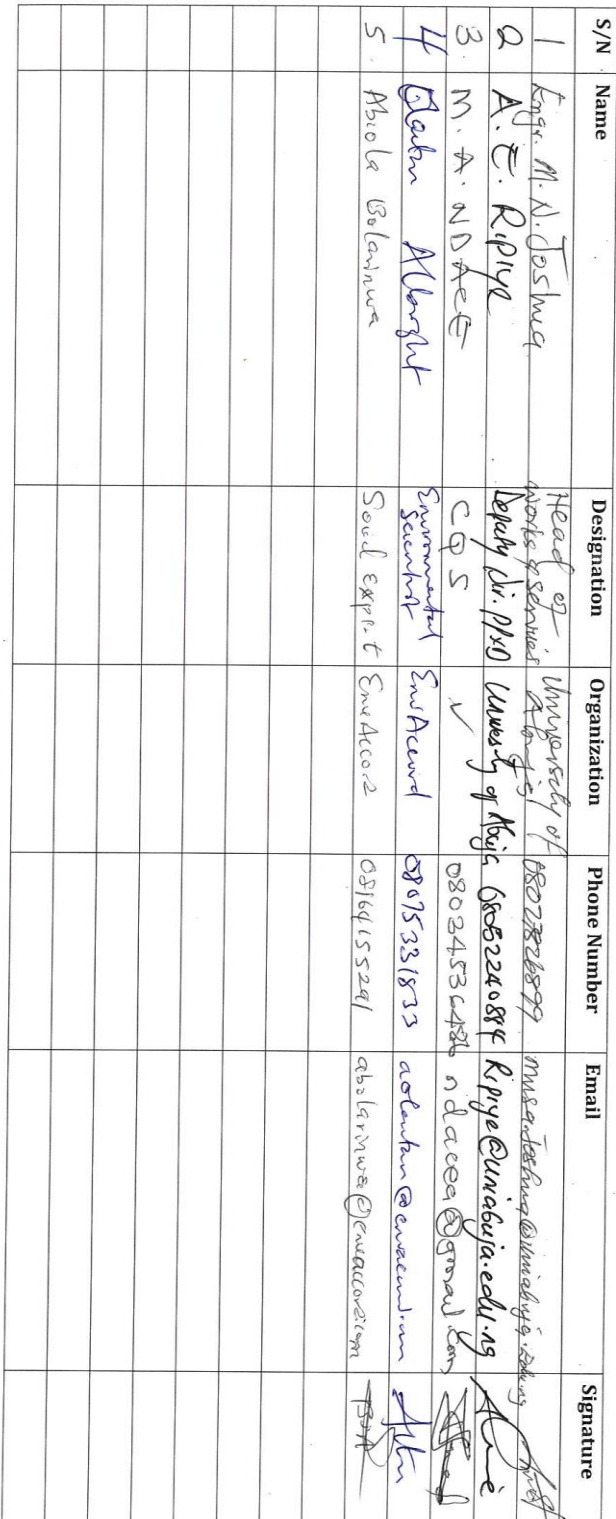 S/N Name Designation Organization Phone Number Email Signature
1 Engr. M. N. Joshua Head of works & services University of Abuja 08027826899 musa.joshua@uniabuja.edu.ng
2 A. E. Ripiye Deputy Dir. PP&D University of Abuja 08052240884 Ripiye@uniabuja.edu.ng
3. M. A. NDACE CQS ✓ 08034536486 ndacea@gmail.com
4 Albright Environmental scientist EnvAccord 08075331833
5. Abiola Bolarinwa Social Expert EnvAccord 08164155291 abolarinwa@envaccord.com